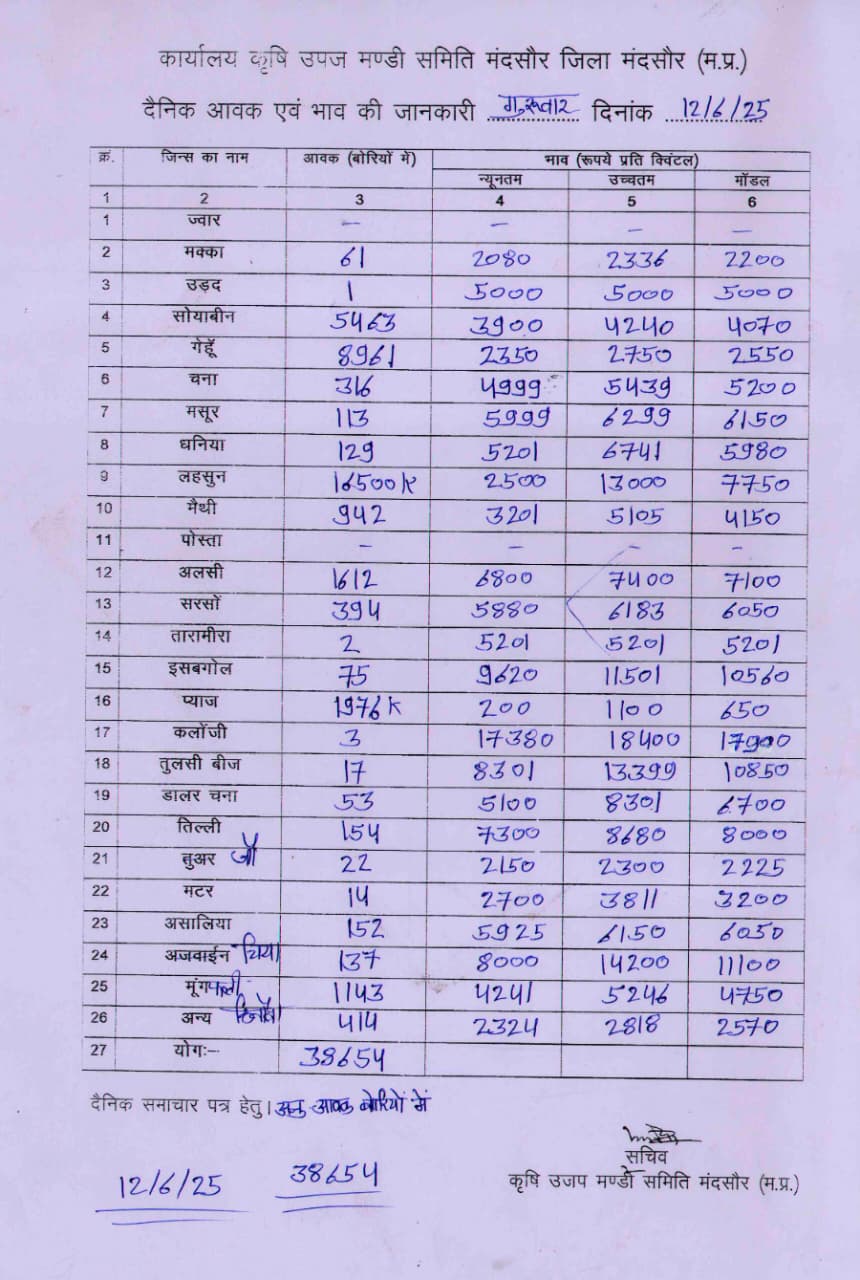 कार्यालय कृषि उपज मण्डी समिति मंदसौर जिला मंदसौर (म.प्र.)
दैनिक आवक एवं भाव की जानकारी गुरूवार दिनांक 12/6/25
क्रं. जिन्स का नाम आवक (बोरियों में) भाव (रूपये प्रति क्विंटल)
न्यूनतम उच्चतम मॉडल
1 2 3 4 5 6
1 ज्वार – – – –
2 मक्का 61 2080 2336 2200
3 उड़द 1 5000 5000 5000
4 सोयाबीन 5463 3900 4240 4070
5 गेहूँ 8961 2350 2750 2550
6 चना 316 4999 5439 5200
7 मसूर 113 5999 6299 6150
8 धनिया 129 5201 6741 5980
9 लहसुन 16500 K 2500 13000 7750
10 मैथी 942 3201 5105 4150
11 पोस्ता – – – –
12 अलसी 1612 6800 7400 7100
13 सरसों 394 5880 6183 6050
14 तारामीरा 2 5201 5201 5201
15 इसबगोल 75 9620 11501 10560
16 प्याज 1976 K 200 1100 650
17 कलोंजी 3 17380 18400 17900
18 तुलसी बीज 17 8301 13399 10850
19 डालर चना 53 5100 8301 6700
20 तिल्ली 154 7300 8680 8000
21 तुअर जौ 22 2150 2300 2225
22 मटर 14 2700 3811 3200
23 असालिया 152 5925 6150 6050
24 अजवाईन चिया 137 8000 14200 11100
25 मूंगफली 1143 4241 5246 4750
26 अन्य 414 2324 2818 2570
27 योगः– 38654
दैनिक समाचार पत्र हेतु। आवक बोरियों में
सचिव
कृषि उजप मण्डी समिति मंदसौर (म.प्र.)
12/6/25 38654